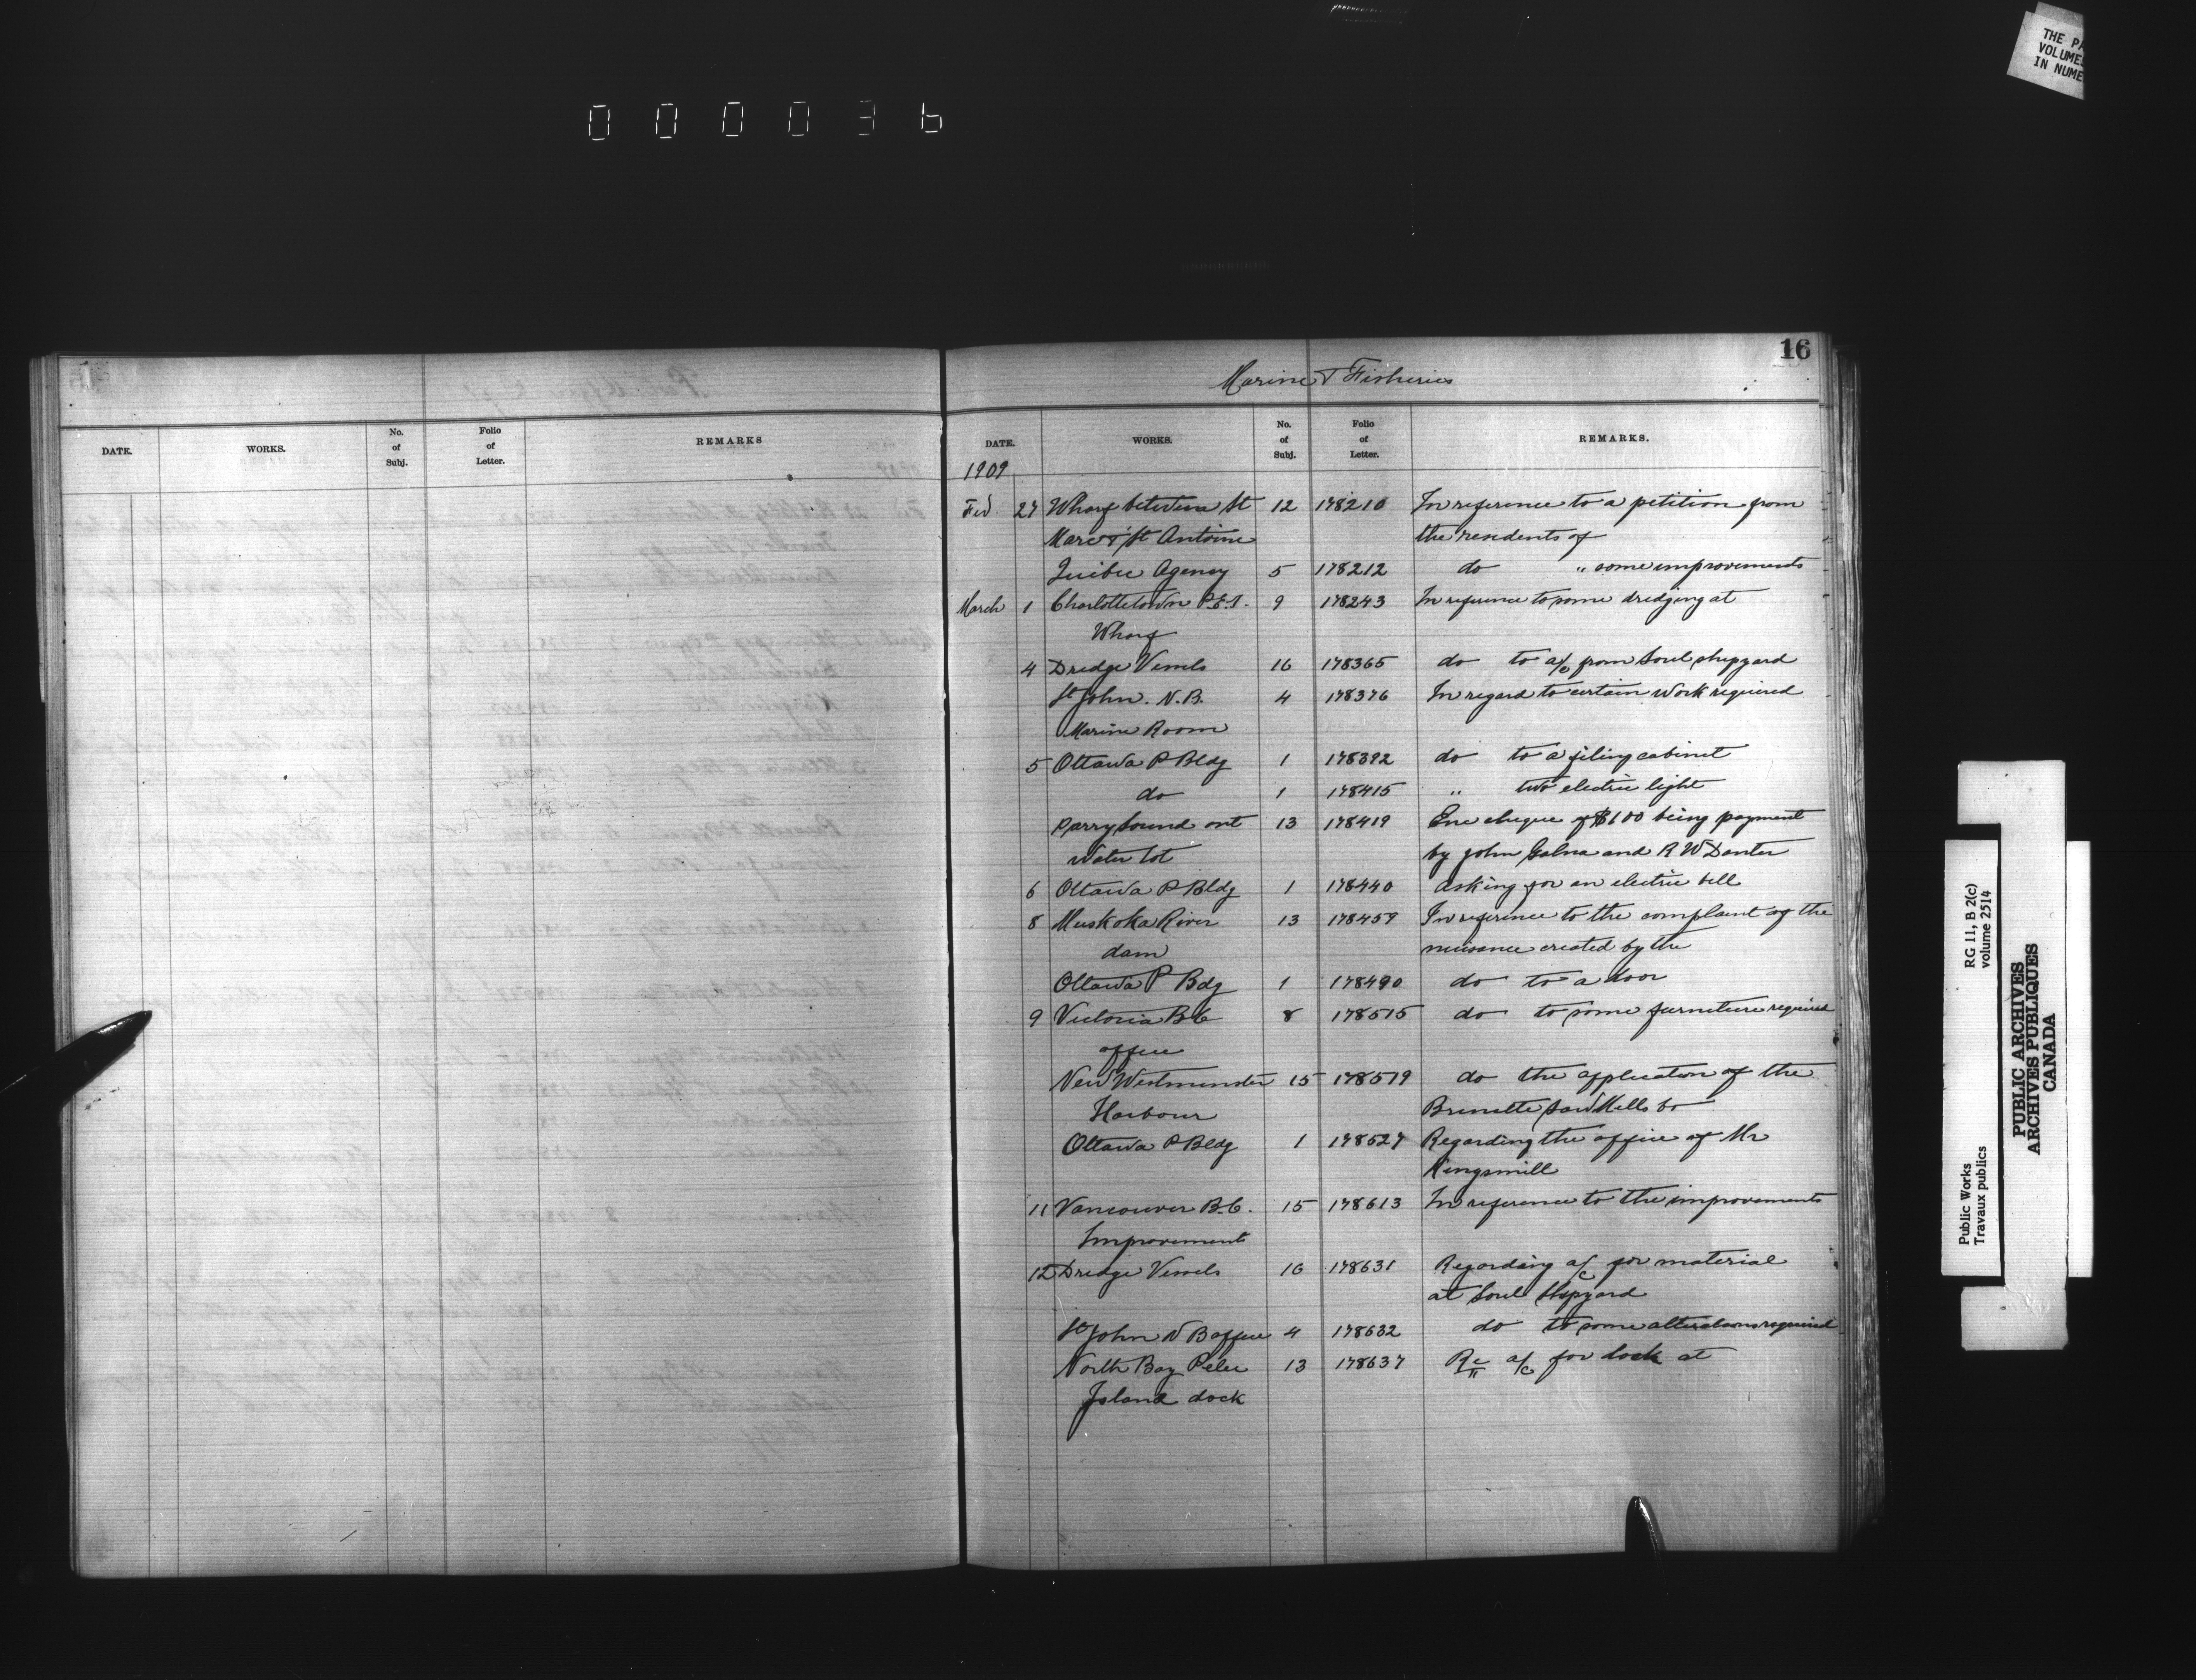 THE PA
VOLUME
IN NUME
000036
16
Marine & Fisheries
DATE. WORKS. No. of Subj. Folio of Letter. REMARKS
DATE. WORKS. No. of Subj. Folio of Letter. REMARKS.
1909
Feb 27 Wharf between St 12 178210 In reference to a petition from
Marc & St Antoine the residents of
Quebec Agency 5 178212 do " some improvements
March 1 Charlottetown P.E.I. 9 178243 In reference to some dredging at
Wharf
4 Dredge Vessels 16 178365 do to a/c from Sorel shipyard
St John. N.B. 4 178376 In regard to certain work required
Marine Room
5 Ottawa P Bldg 1 178392 do to a filing cabinet
do 1 178415 " two electric light
Parry Sound ont 13 178419 Enc cheque of $100 being payment
Water lot by John Galna and R W Danter
6 Ottawa P Bldg 1 178440 asking for an electric bell
8 Muskoka River 13 178459 In reference to the complaint of the
dam nuisance created by the
Ottawa P Bdg 1 178490 do to a door
9 Victoria B C 8 178515 do to some furniture required
office
New Westminster 15 178519 do the application of the
Harbour Brunette Saw Mills Co
Ottawa P Bldg 1 178527 Regarding the office of Mr
Kingsmill
11 Vancouver B.C. 15 178613 In reference to the improvements
Improvements
12 Dredge Vessels 16 178631 Regarding a/c for material
at Sorel Shipyard
St John N B office 4 178632 do to some alterations required
North Bay Pelee 13 178637 Re a/c for lock at
Island dock
Public Works
Travaux publics
RG 11, B 2(c)
volume 2514
PUBLIC ARCHIVES
ARCHIVES PUBLIQUES
CANADA